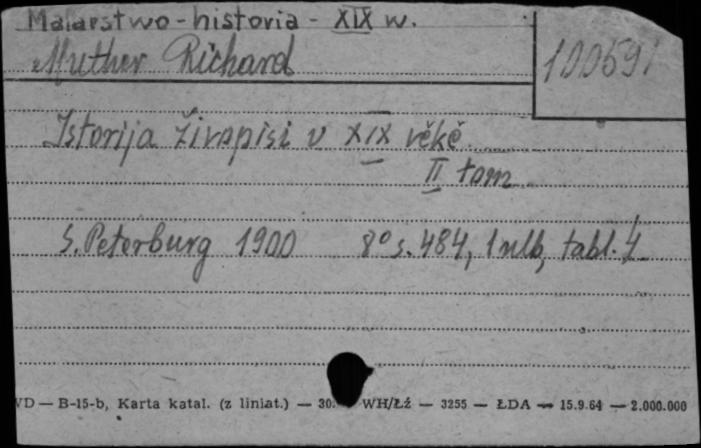 Malarstwo - historia - XIX w.
Muther Richard
100591
Istorija živopisi v XIX věkě.
II tom
S. Peterburg 1900 8° s. 484, 1 nlb, tabl. 4
VD — B-15-b, Karta katal. (z liniat.) — 30. WH/Łź — 3255 — ŁDA — 15.9.64 — 2.000.000